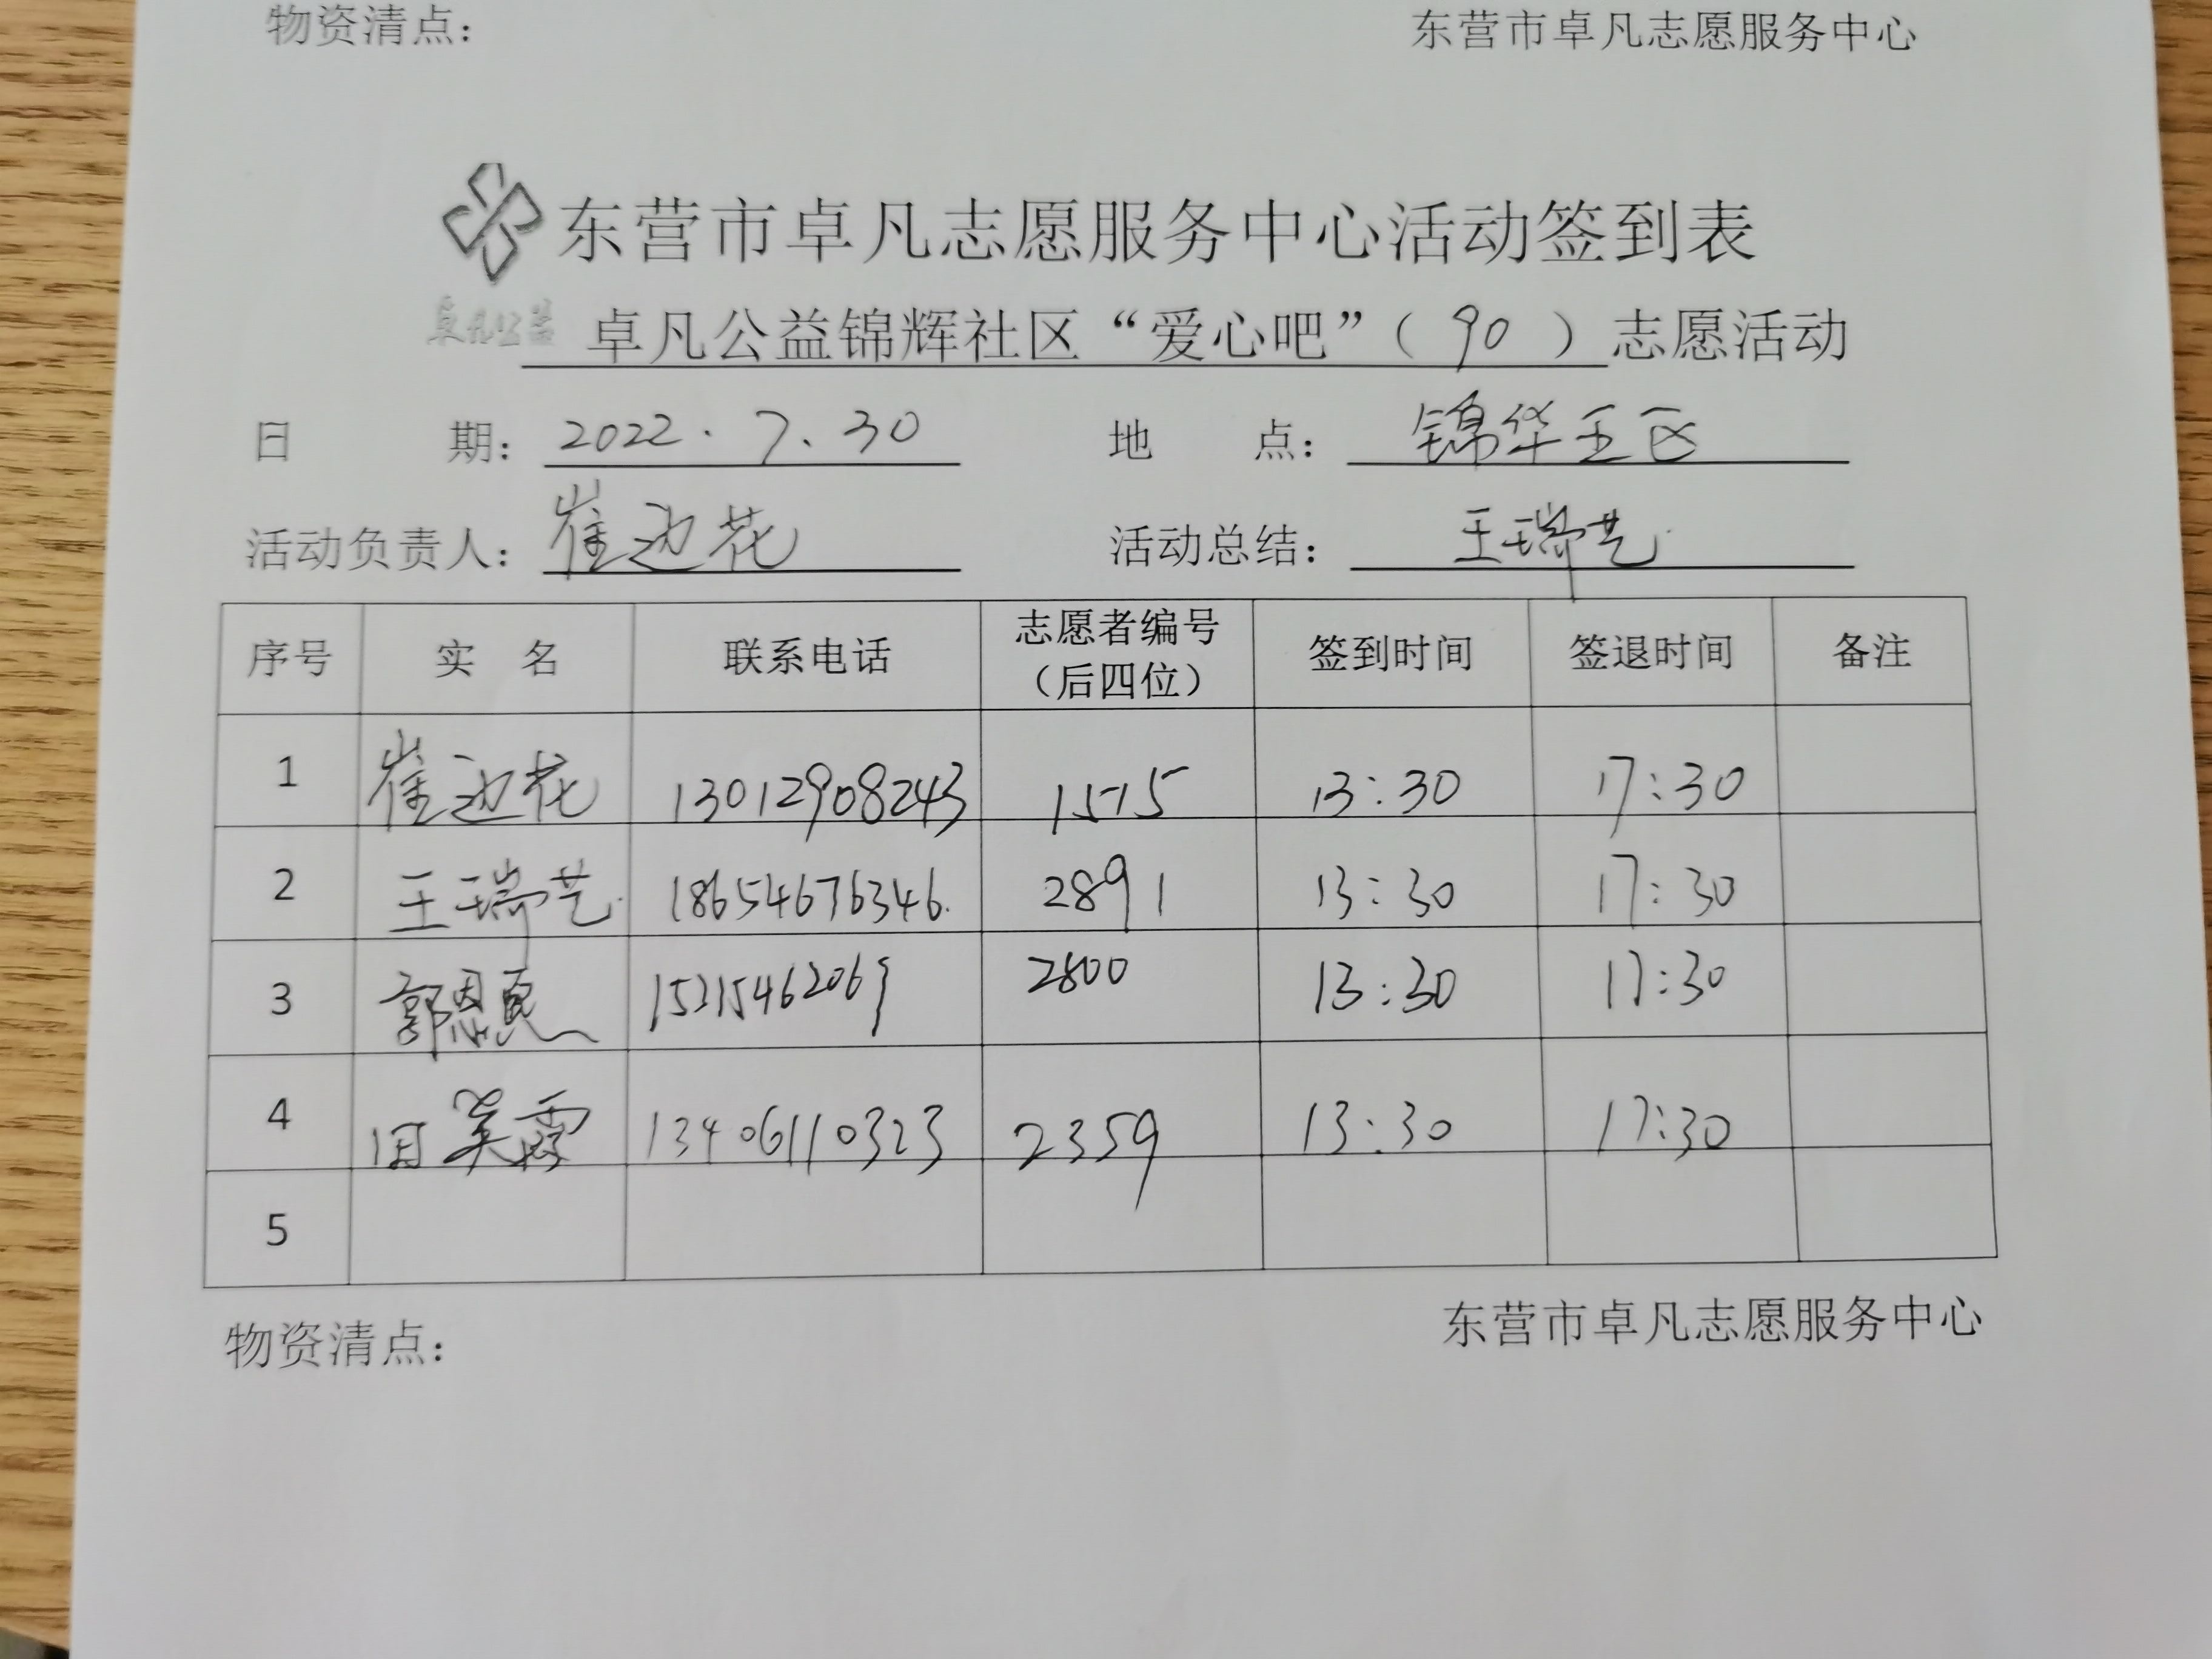 物资清点： 东营市卓凡志愿服务中心
东营市卓凡志愿服务中心活动签到表
卓凡公益
卓凡公益锦辉社区“爱心吧”（90）志愿活动
日 期： 2022.7.30 地 点： 锦华五区
活动负责人： 崔边花 活动总结： 王瑞艺
序号 实 名 联系电话 志愿者编号（后四位） 签到时间 签退时间 备注
1 崔边花 13012908243 1515 13:30 17:30
2 王瑞艺 18654676346 2891 13:30 17:30
3 郭恩 2800 13:30 17:30
4 13406110323 2359 13:30 17:30
5
物资清点： 东营市卓凡志愿服务中心